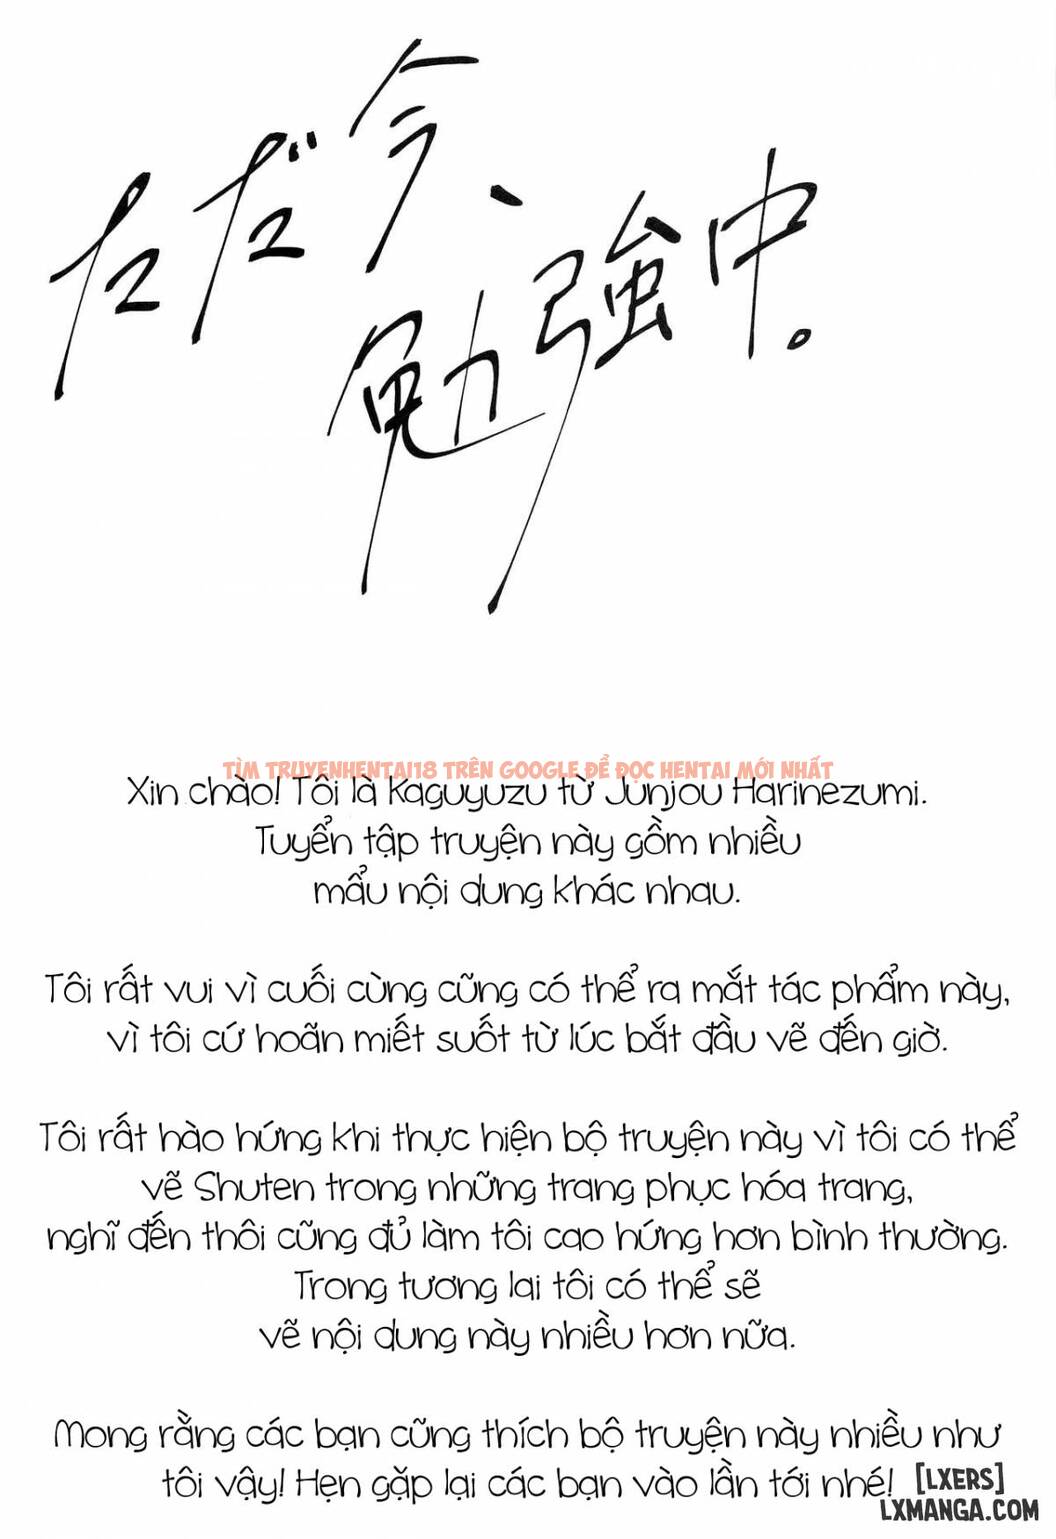 ただ今、
勉強中。
TÌM TRUYENHENTAI18 TRÊN GOOGLE ĐỂ ĐỌC HENTAI MỚI NHẤT
Xin chào! Tôi là Kaguyuzu từ Junjou Harinezumi.
Tuyển tập truyện này gồm nhiều
mẩu nội dung khác nhau.
Tôi rất vui vì cuối cùng cũng có thể ra mắt tác phẩm này,
vì tôi cứ hoãn miết suốt từ lúc bắt đầu vẽ đến giờ.
Tôi rất hào hứng khi thực hiện bộ truyện này vì tôi có thể
vẽ Shuten trong những trang phục hóa trang,
nghĩ đến thôi cũng đủ làm tôi cao hứng hơn bình thường.
Trong tương lai tôi có thể sẽ
vẽ nội dung này nhiều hơn nữa.
Mong rằng các bạn cũng thích bộ truyện này nhiều như
tôi vậy! Hẹn gặp lại các bạn vào lần tới nhé!
[LXERS]
LXMANGA.COM